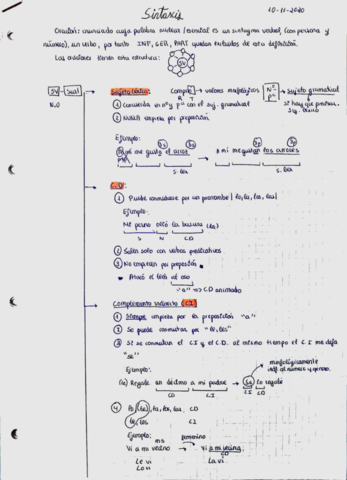 Sintaxis
10-11-2020
Oración: enunciado cuya palabra nuclear/esencial es un sintagma verbal, (con persona y
número), un verbo, por tanto INF, GER, PART quedan excluidos de esta definición.
Las oraciones tienen esta estructura:
SV
SV - Sust
N.O
Sujeto léxico:
valores morfológicos
Nº
Pª
sujeto gramatical
① Concuerda en nº y pª con el suj. gramatical
② NUNCA empieza por preposición
Ejemplo:
me gusta el arroz
a mí me gustan los arroces
S. léx
S. léx
C.D
① Puede conmutarse por un pronombre | lo, la, los, las |
Ejemplo:
Mi perro olió la basura (la)
S N CD
② Salen solo con verbos predicativos
③ No empiezan por preposición
Atacó el león al oso
"a" => CD animado
Complemento indirecto (CI)
① Siempre empieza por la preposición "a"
② Se puede conmutar por "le, les"
③ Si se conmutan el C.I y el C.D. al mismo tiempo el C.I me da
"se"
morfológicamente
Ejemplo:
(le) Regalé un décimo a mi padre
Se lo regalé
CI CD
④ lo, (le), la, los, las CD
le, les CI
Ejemplo:
ms
femenino
Vi a mi vecino
Vi a mi vecina
CD
Le vi
La vi
Lo vi